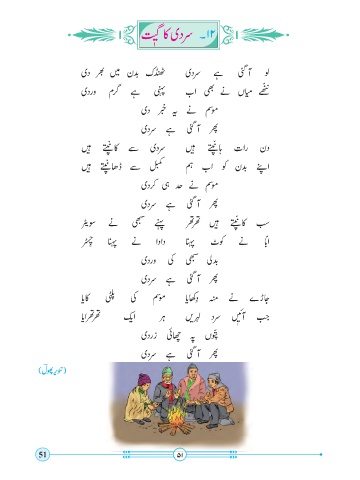 ۱۲۔ سردی کا گیت
لو آ گئی ہے سردی ٹھنڈک بدن میں بھر دی
ننھے میاں نے بھی اب پہنی ہے گرم وردی
موسم نے یہ خبر دی
پھر آ گئی ہے سردی
دن رات ہانپتے ہیں سردی سے کانپتے ہیں
اپنے بدن کو اب ہم کمبل سے ڈھانپتے ہیں
موسم نے حد ہی کر دی
پھر آ گئی ہے سردی
سب کانپتے ہیں تھرتھر پہنے سبھی نے سویٹر
ابّا نے کوٹ پہنا دادا نے پہنا چسٹر
بدلی سبھی کی وردی
پھر آ گئی ہے سردی
جاڑے نے منہ دِکھایا موسم کی پلٹی کایا
جب آئیں سرد لہریں ہر ایک تھرتھرایا
پتّوں پہ چھائی زردی
پھر آ گئی ہے سردی
(تنویر پھولؔ)
51
۵۱